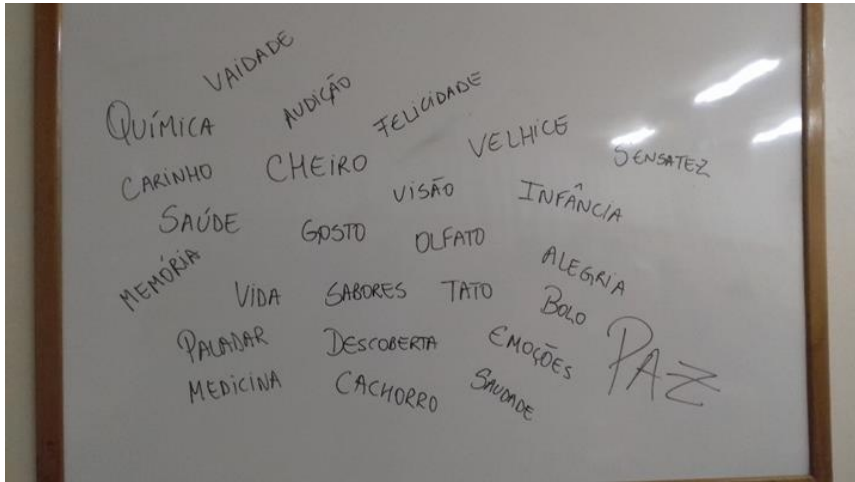 VAIDADE
QUÍMICA AUDIÇÃO FELICIDADE VELHICE SENSATEZ
CARINHO CHEIRO VISÃO INFÂNCIA
SAÚDE GOSTO OLFATO
MEMÓRIA VIDA SABORES TATO ALEGRIA
BOLO
PALADAR DESCOBERTA EMOÇÕES PAZ
MEDICINA CACHORRO SAUDADE